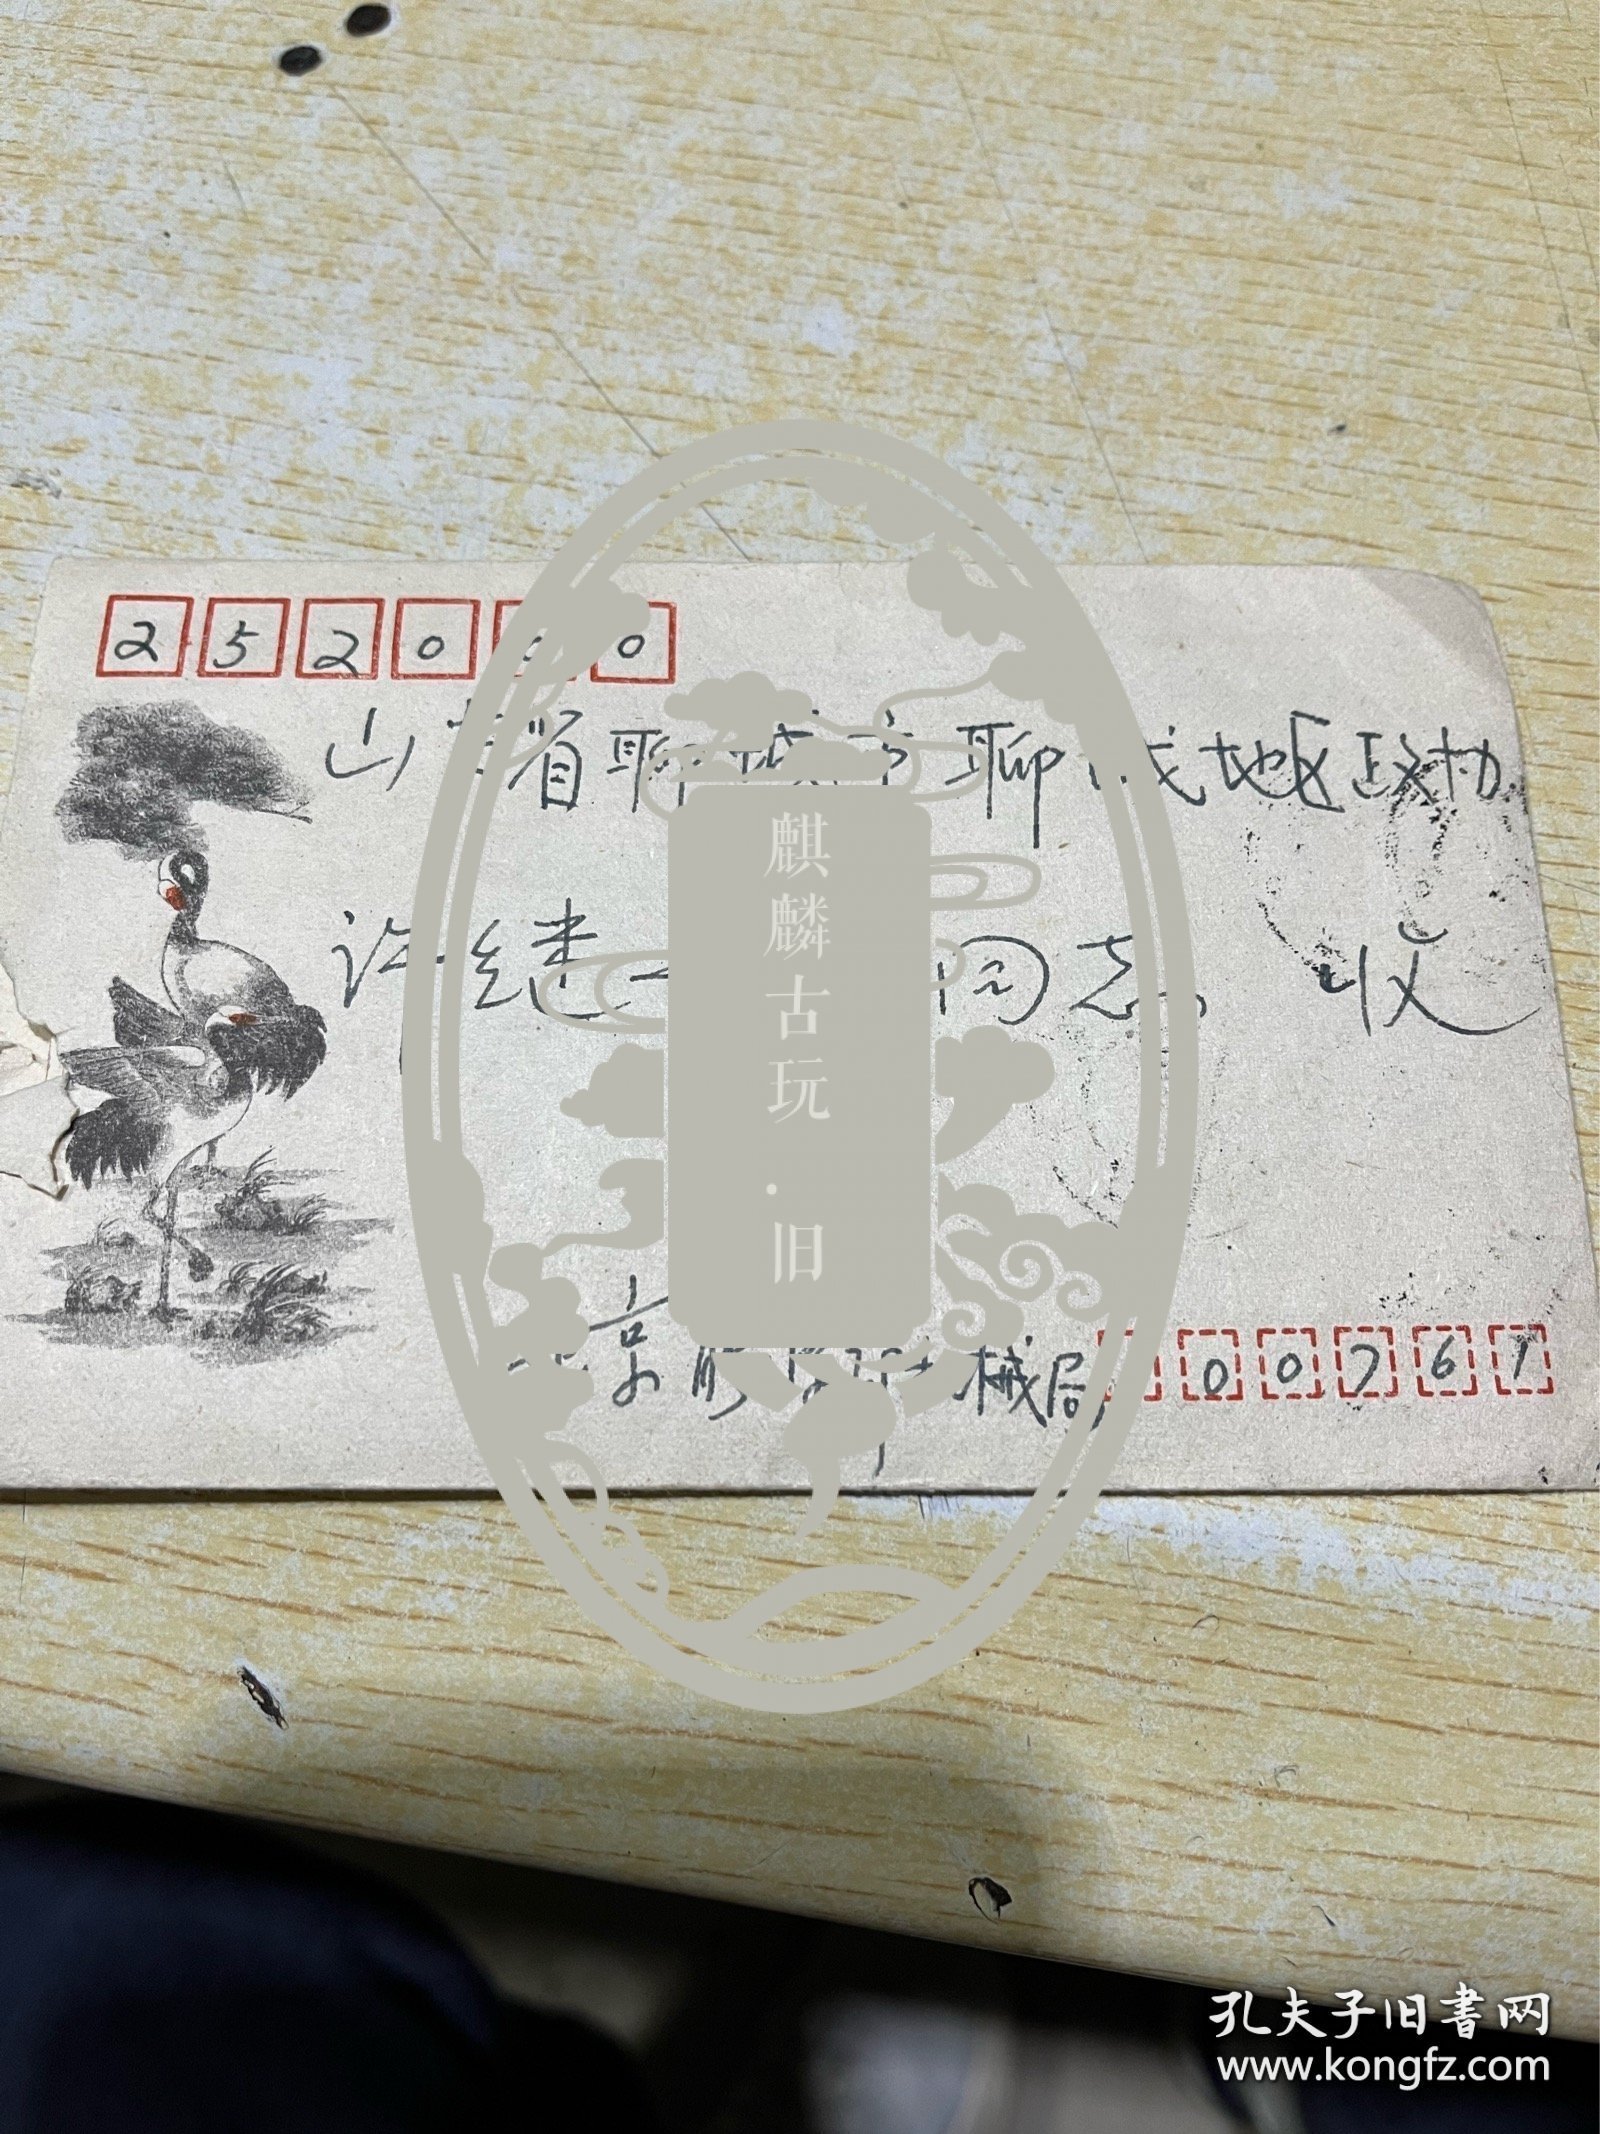 252000
山东省聊城市聊城地区政协
许继 同志 收
京 械局 00761
麒麟古玩·旧
孔夫子旧書网
www.kongfz.com